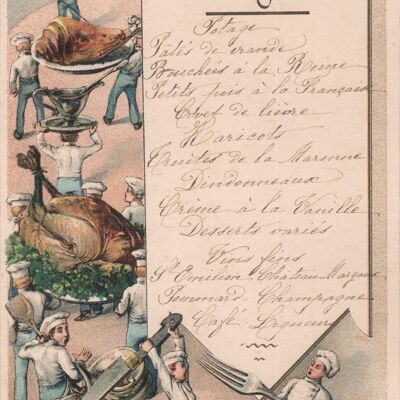 Potage
Pâtés de viande
Bouchées à la Reine
Petits pois à la Française
Civet de lièvre
Haricots
Truites de la Maronne
Dindonneaux
Crème à la Vanille
Desserts variés
Vins fins
St Emilion - Château-Margaux
Pommard - Champagne
Café - Liqueurs